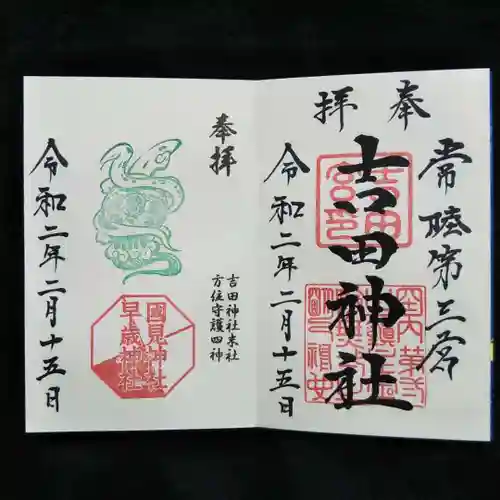 奉拝
常陸第三宮
吉田神社
令和二年二月十五日
奉拝
吉田神社末社
方位守護四神
國見神社
早歳神社
令和二年二月十五日